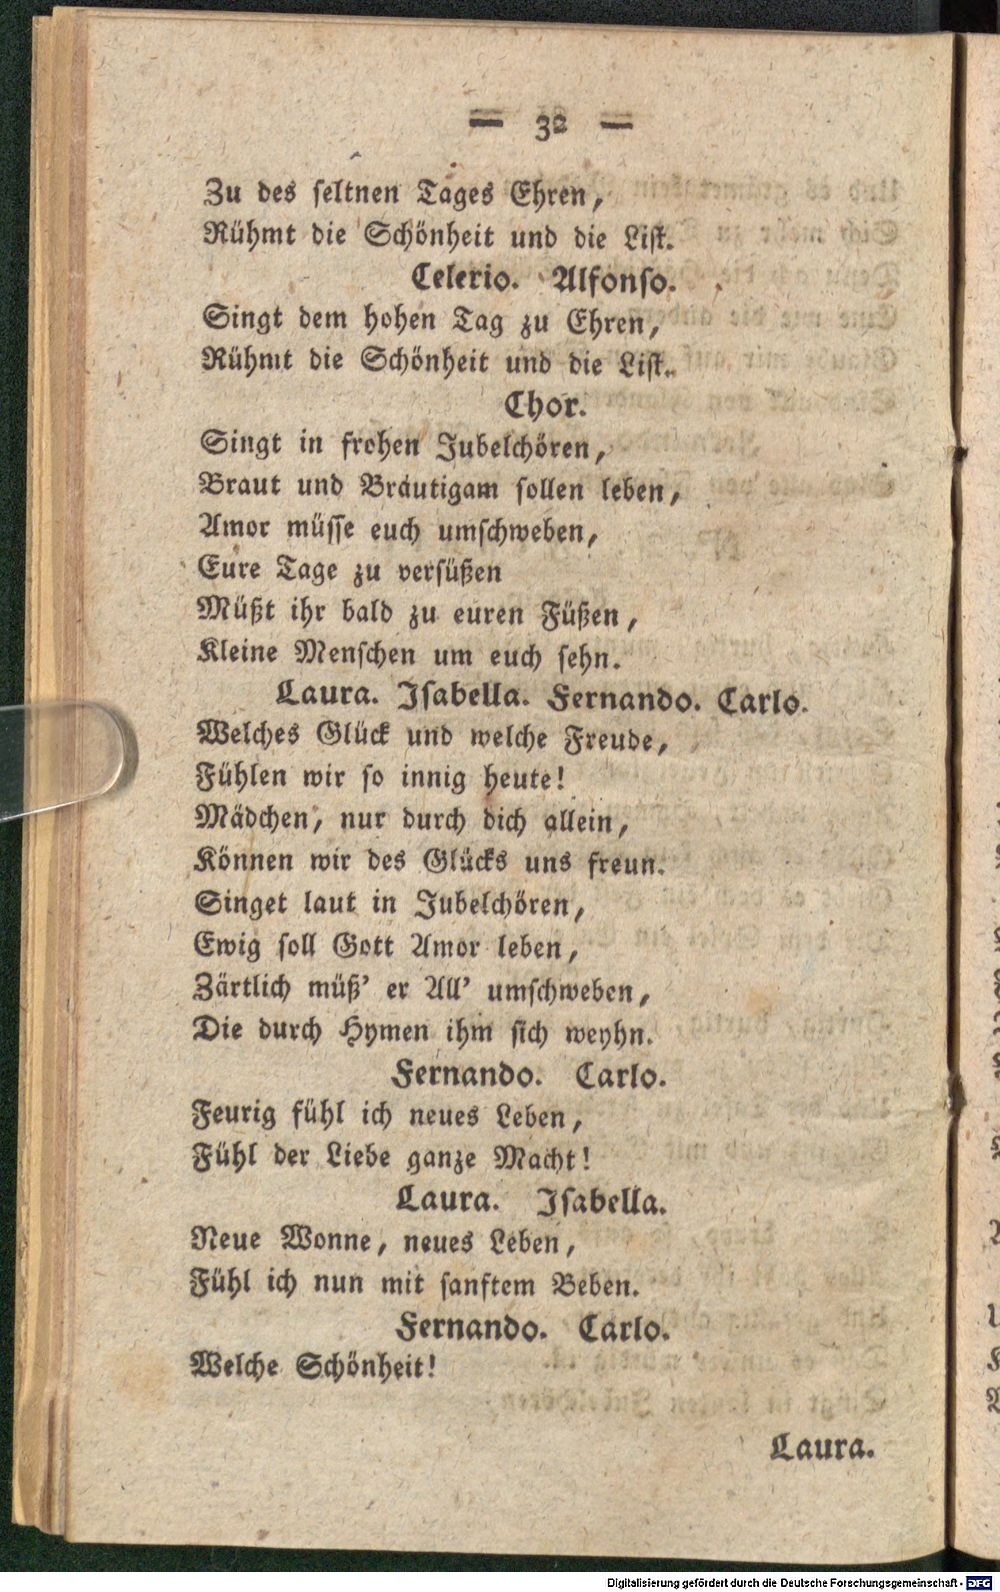 = 32 =
Zu des seltnen Tages Ehren,
Rühmt die Schönheit und die List.
Celerio. Alfonso.
Singt dem hohen Tag zu Ehren,
Rühmt die Schönheit und die List.
Chor.
Singt in frohen Jubelchören,
Braut und Bräutigam sollen leben,
Amor müsse euch umschweben,
Eure Tage zu versüßen
Müßt ihr bald zu euren Füßen,
Kleine Menschen um euch sehn.
Laura. Isabella. Fernando. Carlo.
Welches Glück und welche Freude,
Fühlen wir so innig heute!
Mädchen, nur durch dich allein,
Können wir des Glücks uns freun.
Singet laut in Jubelchören,
Ewig soll Gott Amor leben,
Zärtlich müß' er All' umschweben,
Die durch Hymen ihm sich weyhn.
Fernando. Carlo.
Feurig fühl ich neues Leben,
Fühl der Liebe ganze Macht!
Laura. Isabella.
Neue Wonne, neues Leben,
Fühl ich nun mit sanftem Beben.
Fernando. Carlo.
Welche Schönheit!
Laura.
Digitalisierung gefördert durch die Deutsche Forschungsgemeinschaft - DFG